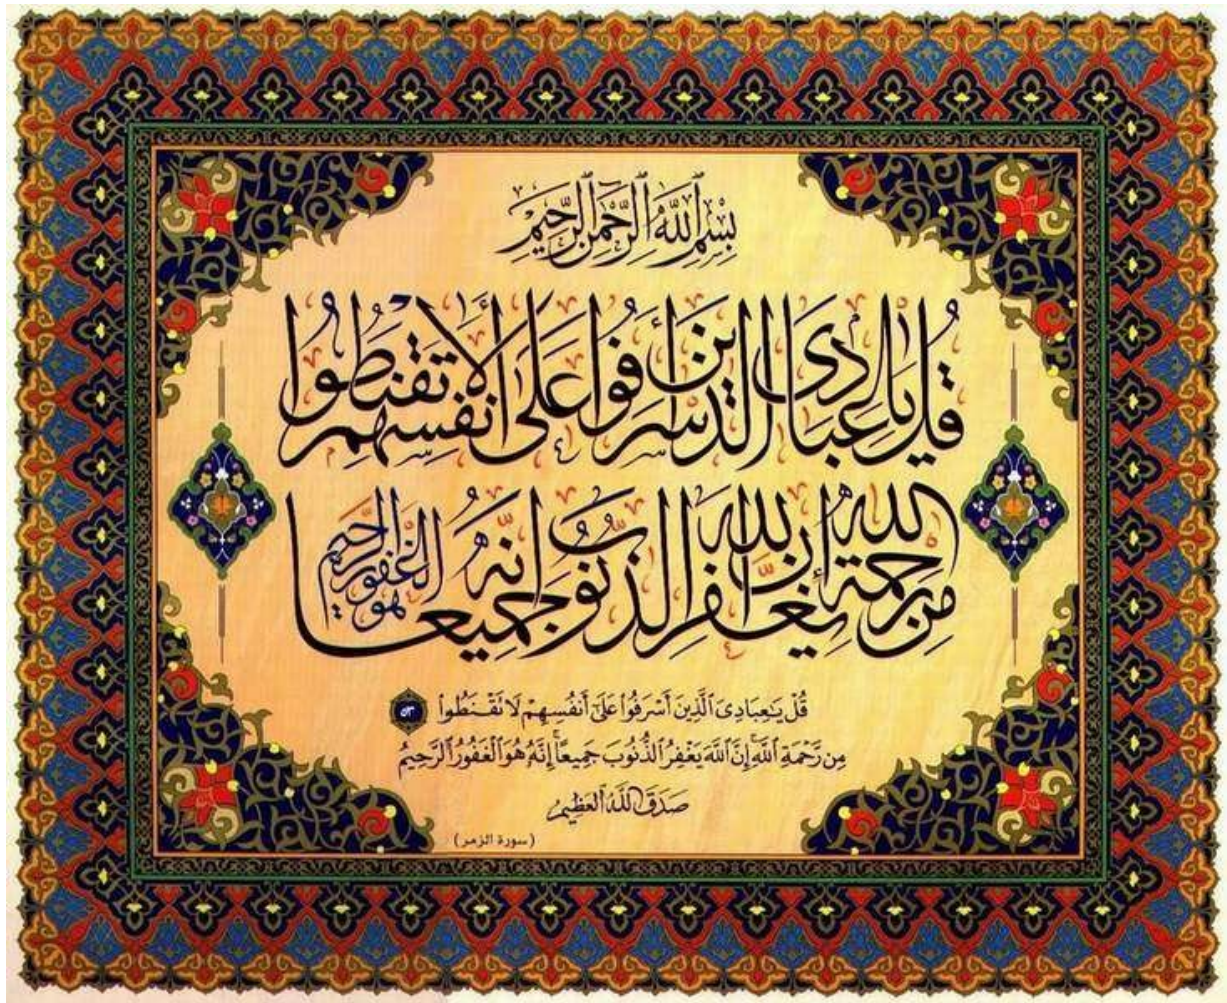 بِسْمِ ٱللَّهِ ٱلرَّحْمَٰنِ ٱلرَّحِيمِ
قُلْ يَا عِبَادِىَ الَّذِينَ أَسْرَفُوا عَلَى أَنْفُسِهِمْ لَا تَقْنَطُوا
مِنْ رَحْمَةِ اللَّهِ إِنَّ اللَّهَ يَغْفِرُ الذُّنُوبَ جَمِيعًا إِنَّهُ هُوَ الْغَفُورُ الرَّحِيمُ
قُلْ يَـٰعِبَادِىَ ٱلَّذِينَ أَسْرَفُوا۟ عَلَىٰٓ أَنفُسِهِمْ لَا تَقْنَطُوا۟ ٥٣
مِن رَّحْمَةِ ٱللَّهِ ۚ إِنَّ ٱللَّهَ يَغْفِرُ ٱلذُّنُوبَ جَمِيعًا ۚ إِنَّهُۥ هُوَ ٱلْغَفُورُ ٱلرَّحِيمُ
صَدَقَ اللَّهُ العَظِيمُ
(سورة الزمر)